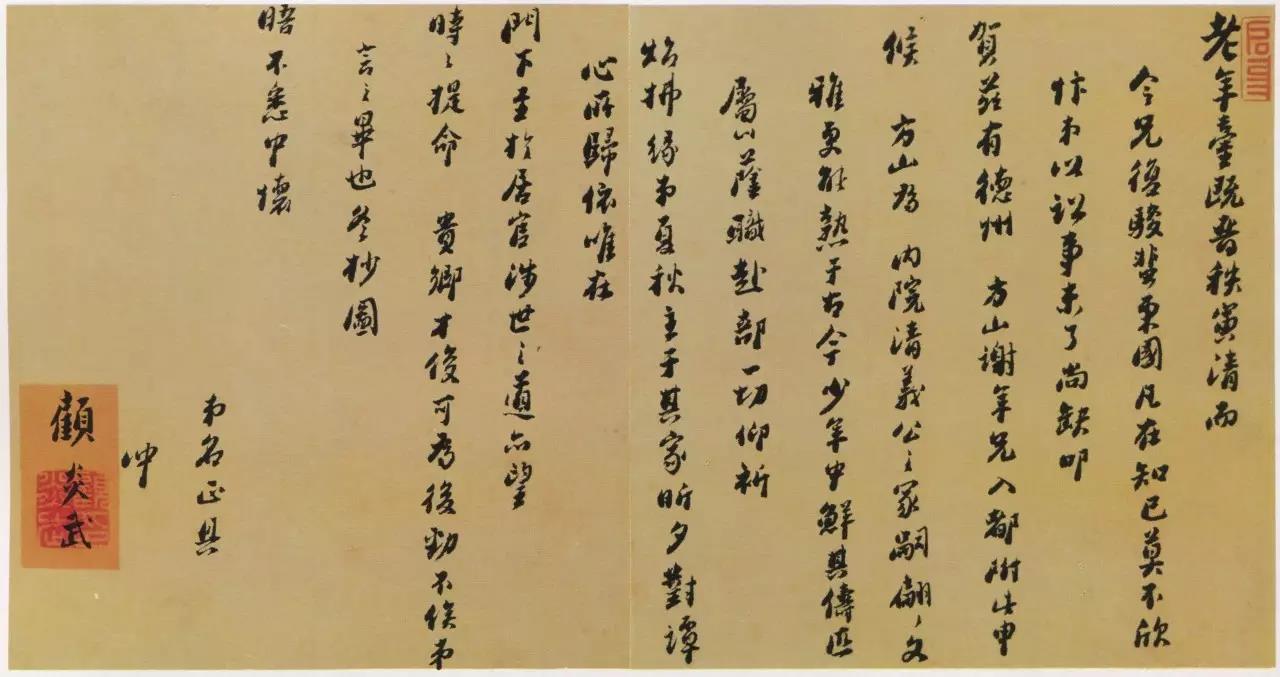 老年臺既晉秩寅清而
令兄復駿蜚東國凡在知己莫不欣
忭弟以訟事未了尚缺叩
賀茲有德州 方山謝年兄入都附此申
候 方山為 內院清義公之冢嗣翩〻文
雅更能熟于古今少年中鮮其儔匹
屬以蔭職赴部一切仰祈
炤拂緣弟夏秋主于其家昕夕對譚
心所歸依唯在
門下至於居官涉世之道亦望
時〻提命 貴鄉才俊可為後勁不俟弟
言之畢也冬杪圖
晤不悉中懷
弟名正具
沖
顧炎武